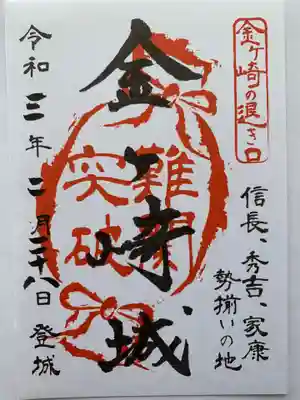 金ヶ崎の退き口
信長、秀吉、家康
勢揃いの地
金ヶ崎城
難関
突破
令和三年二月二十八日 登城